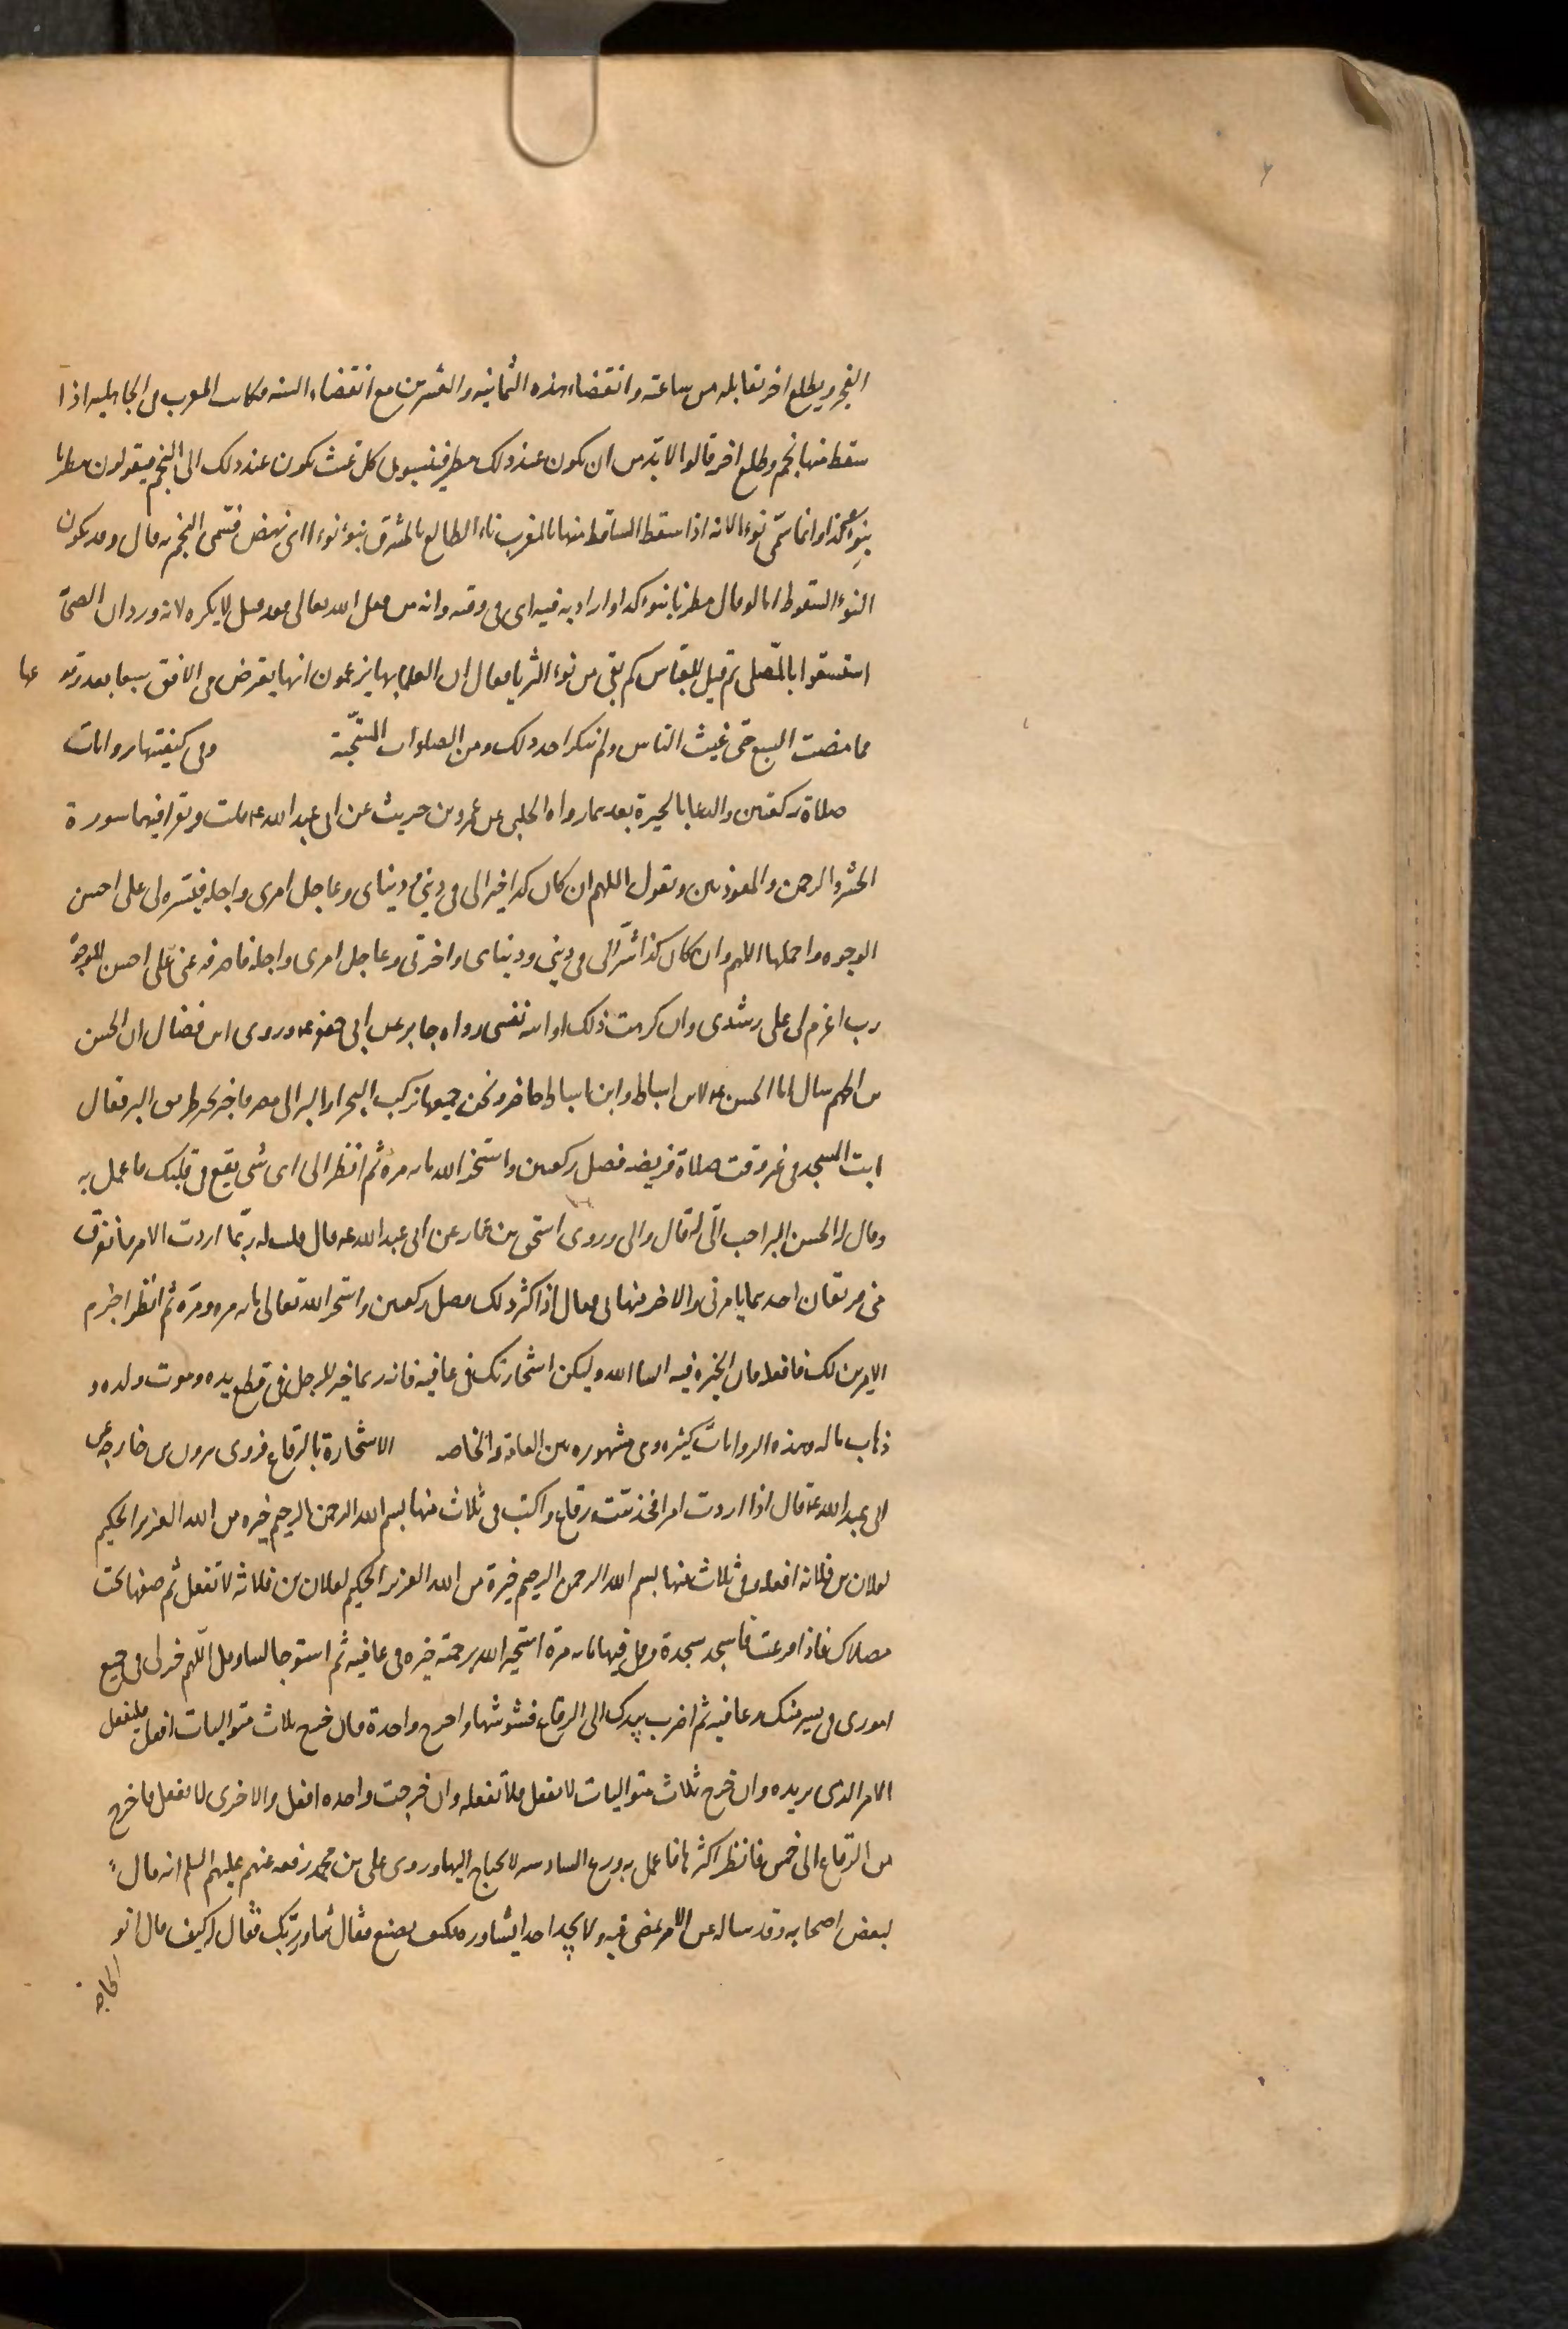 الفجر ويطلع اخر يقابله من ساعته وانقضاء هذه الثمانية والعشرين مع انقضاء السنه فكانت العرب فى الجاهليه اذا
سقط منها نجم وطلع اخر قالوا لابد من ان يكون عند ذلك مطر فينسبون كل غيث يكون عند ذلك الى النجم فيقولون مطرنا
بنوء كذا وانما سمى نوءا لانه اذا سقط الساقط منها بالمغرب ناء الطالع بالمشرق ينوء نوءا اى نهض فسمى النجم به قال وقد يكون
النوء السقوط اما لو قال مطرنا بنوء كذا واراد به فيه اى فى وقته وانه من فعل الله تعالى فقد قيل لا يكره لانه ورد ان الصحا
استسقوا بالمصلى ثم قيل للعباس كم بقى من نوء الثريا فقال ان العلما بها يزعمون انها يعترض فى الافق سبعا بعد وقو عها
فما مضت السبع حتى غيث الناس ولم ينكر احد ذلك ومن الصلوات المستحبة وفى كيفيتها روايات
صلاة ركعتين والدعا بالخيرة بعدهما رواه الحلبى عن عمرو بن حريث عن ابى عبد الله ع قلت ويقرا فيهما سورة
الحشر والرحمن والمعوذتين ويقول اللهم ان كان كذا خيرا لى فى دينى ودنياى وعاجل امرى واجله فيسره لى على احسن
الوجوه واجملها اللهم وان كان كذا شرا لى فى دينى ودنياى واخرتى وعاجل امرى واجله فاصرفه عنى على احسن الوجوه
رب اعزم لى على رشدى وان كرهت ذلك او ابته نفسى رواه جابر عن ابى جعفر ع وروى ابن فضال ان الحسن
بن الجهم سال ابا الحسن ع لابن اسباط وابن اسباط حاضر ونحن جميعا نركب البحر او البر الى مصر واخبره بخطر من البر فقال
ايت المسجد فى غير وقت صلاة فريضه فصل ركعتين واستخر الله مايه مرة ثم انظر الى اى شى يقع فى قلبك فاعمل به
وقال له الحسن البر احب الى له قال والى وروى اسحق بن عمار عن ابى عبد الله ع قال قلت له ربما اردت الامر فتفرق
منى فرقتان احدهما يامرنى والاخر ينهانى فقال اذا كنت كذلك فصل ركعتين واستخر الله تعالى مايه مره ومره ثم انظر احزم
الامرين لك فافعله فان الخيرة فيه ان شا الله وليكن استخارتك فى عافيه فانه ربما خير للرجل فى قطع يده وموت ولده و
ذهاب ماله وهذه الروايات كثيره وهى مشهوره بين العامة والخاصه الاستخارة بالرقاع فروى هرون بن خارجه عن
ابى عبد الله ع قال اذا اردت امرا فخذ ست رقاع واكتب فى ثلاث منها بسم الله الرحمن الرحيم خيره من الله العزيز الحكيم
لفلان بن فلانه افعله وفى ثلاث منها بسم الله الرحمن الرحيم خيرة من الله العزيز الحكيم لفلان بن فلانة لا تفعل ثم ضعها تحت
مصلاك فاذا فرغت فاسجد سجدة وقل فيها مايه مرة استخير الله برحمته خيره فى عافيه ثم استو جالسا وقل اللهم خر لى فى جميع
امورى فى يسر منك وعافيه ثم اضرب بيدك الى الرقاع فشوشها واخرج واحدة فان خرج ثلاث متواليات افعل فليفعل
الامر الذى يريده وان خرج ثلاث متواليات لا تفعل فلا تفعله وان خرجت واحده افعل والاخرى لا تفعل فاخرج
من الرقاع الى خمس فانظر اكثرها فاعمل به ودع السادسه لا تحتاج اليها وروى على بن محمد رفعه عنهم عليهم السلم انه قال
لبعض اصحابه وقد ساله عن الامر يمضى فيه ولا يجد احدا يشاوره فكيف يصنع فقال شاور ربك فقال له كيف قال انو
الحاجة